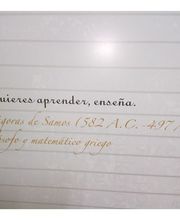 uieres aprender, enseña.
ígoras de Samos (582 A.C. - 497 A
ósofo y matemático griego